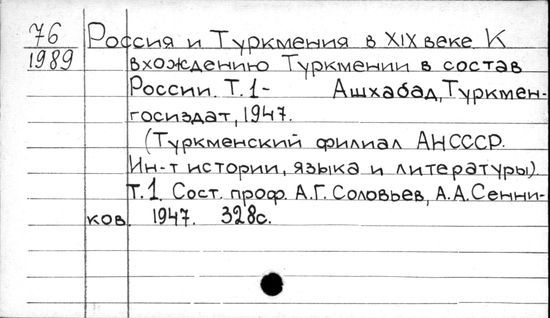 76 Россия и Туркмения в XIX веке. К
1989 вхождению Туркмении в состав
России. Т. 1- Ашхабад, Туркмен-
госиздат, 1947.
(Туркменский филиал АНСССР.
Ин-т истории, языка и литературы).
Т. 1. Сост. проф. А.Г. Соловьев, А.А. Сенни-
ков. 1947. 328с.